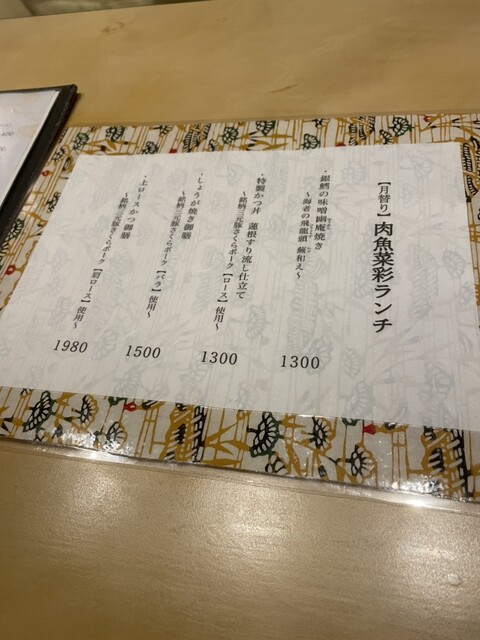 【月替り】肉魚菜彩ランチ
・銀鱈の味噌幽庵焼き
～海老の飛龍頭 蕪和え～
1300
・特製かつ丼 蓮根すり流し仕立て
～銘柄三元豚さくらポーク【ロース】使用～
1300
・しょうが焼き御膳
～銘柄三元豚さくらポーク【バラ】使用～
1500
・上ロースかつ御膳
～銘柄三元豚さくらポーク【肩ロース】使用～
1980